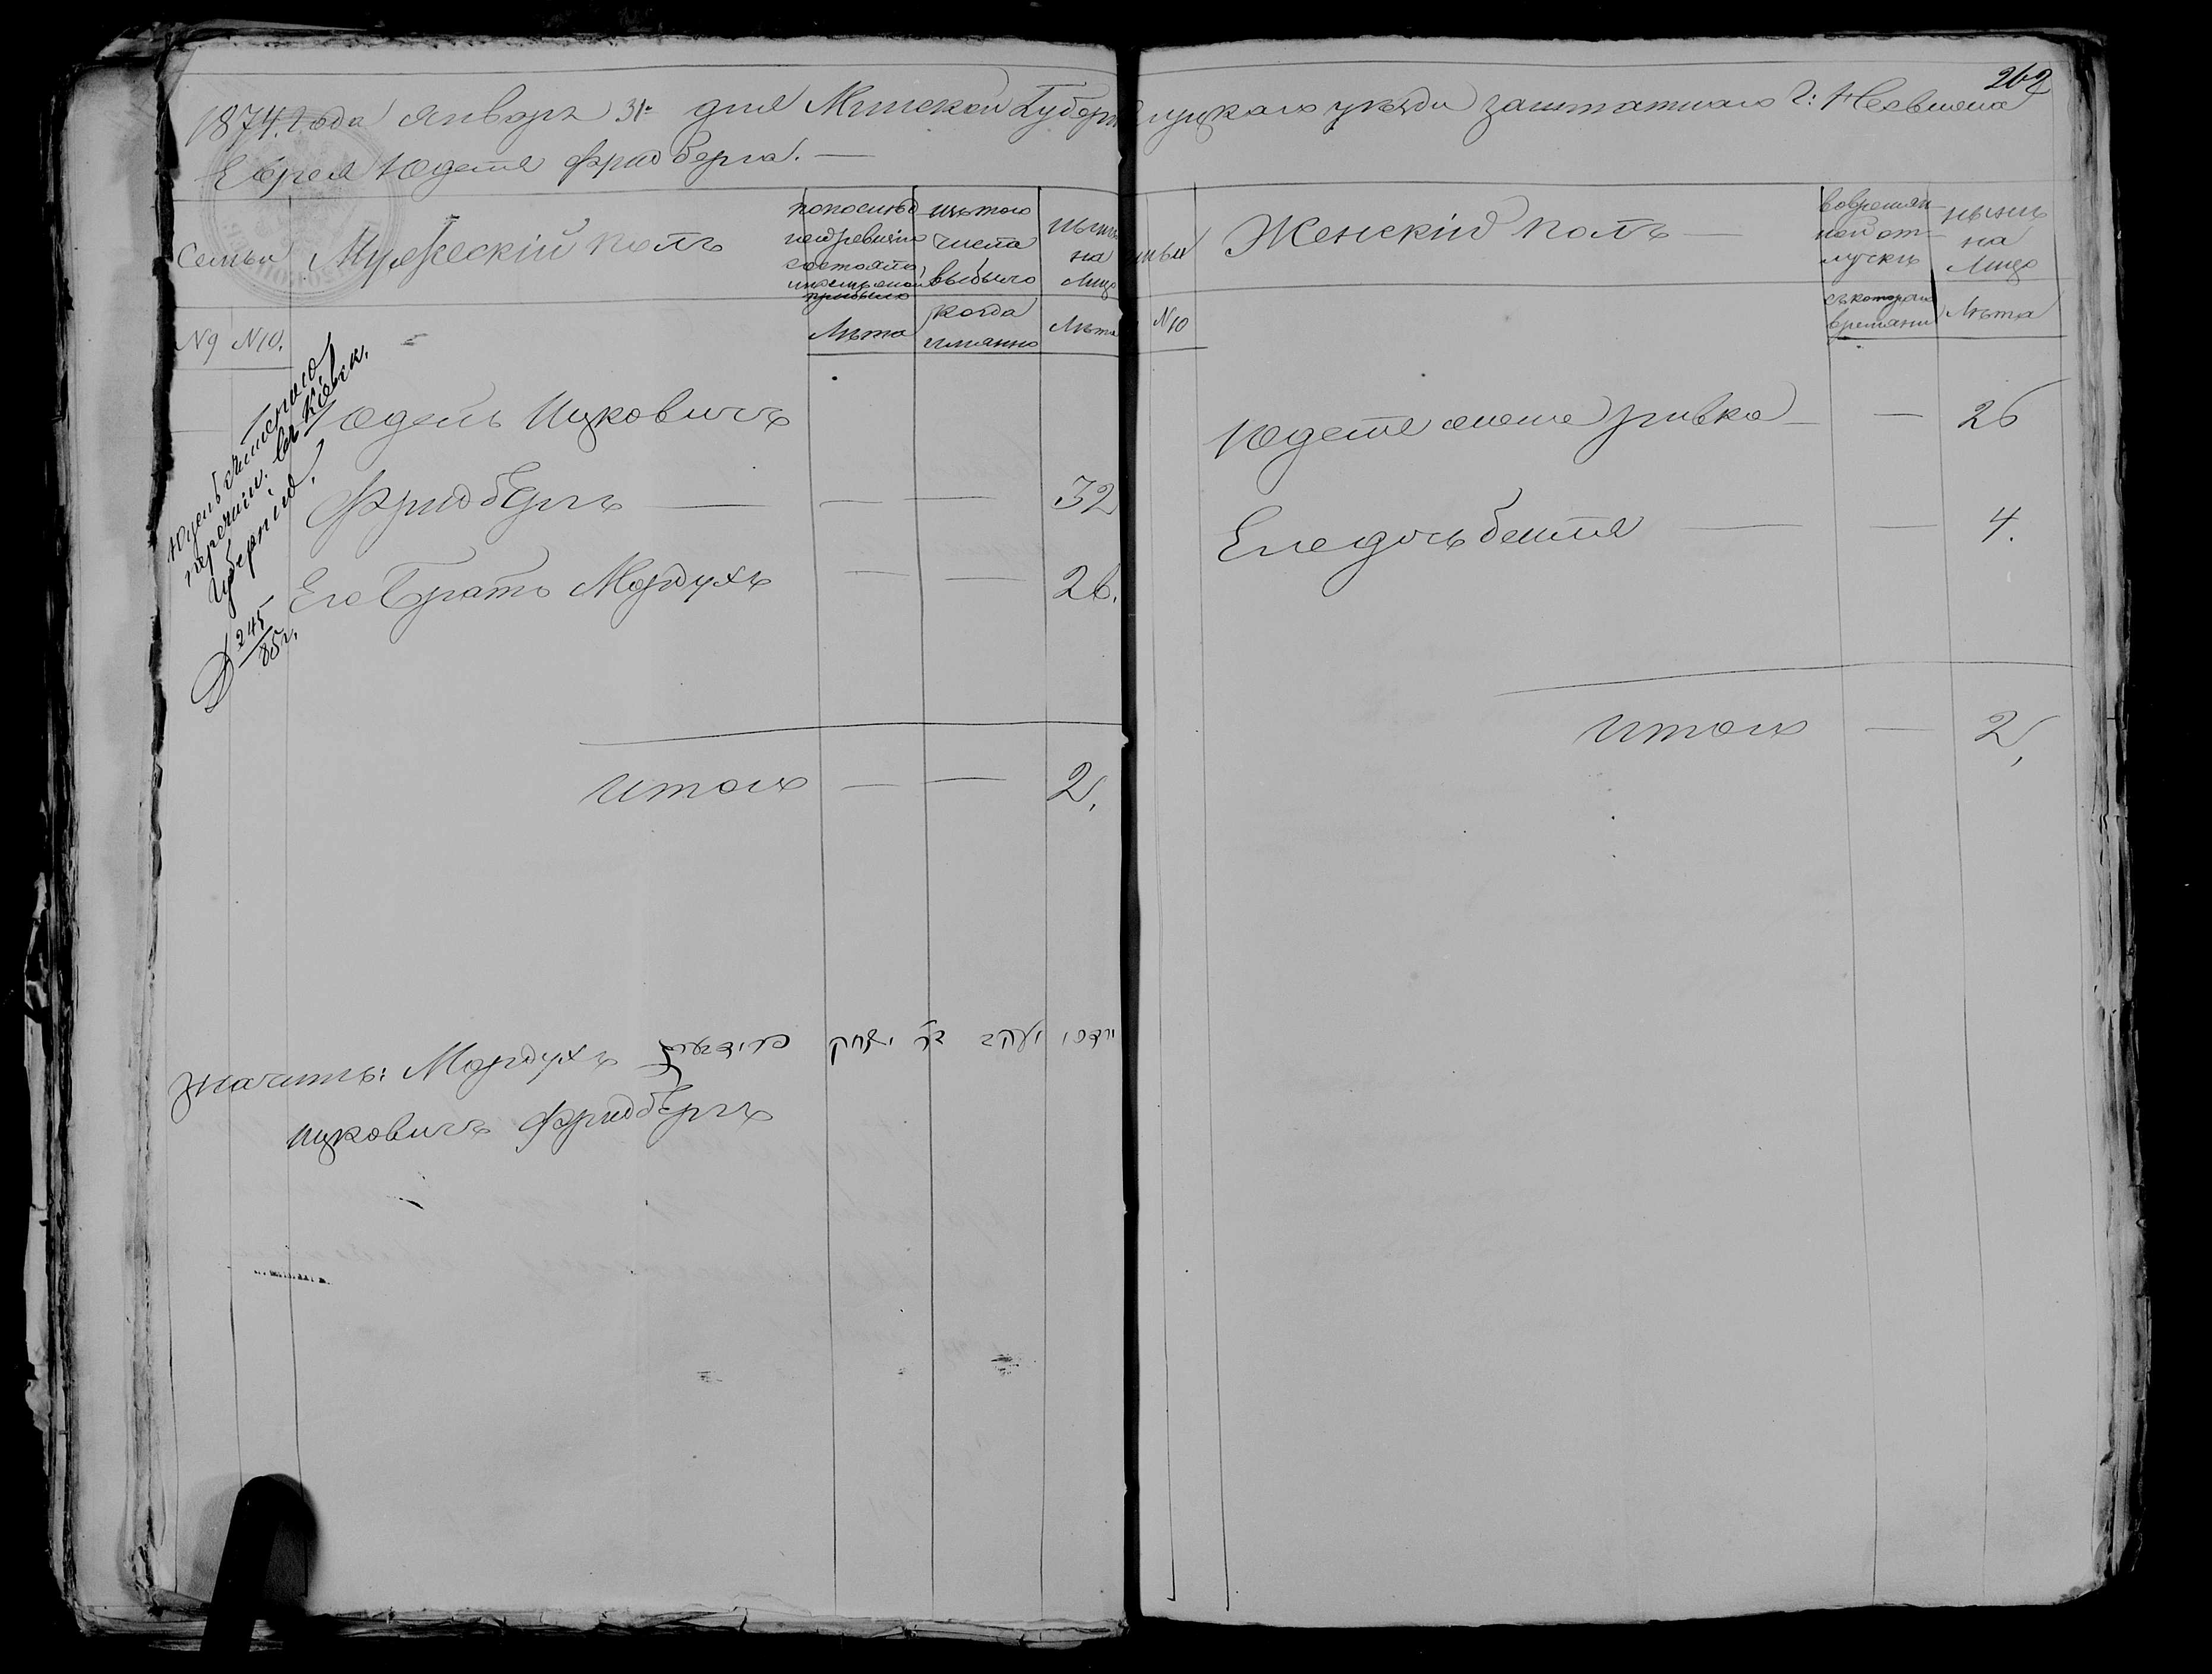 262
1874. Года Января 31 дня Минской Губерн Слуцкаго уезда заштатнаго г: Несвижа
Еврея Юделя Фридберга. —
Семьи
Мужескій полъ
по последней ревизіи состояло и после оной прибыло
изъ того числа выбыло
ныне на Лицо
№9 №10.
Лета
когда именно
Лета
Юдель
перечисл. въ Кіевск.
Губернію.
245/85 г.
Юдель Ицковичъ
Фридбергъ — — — 32
Его Братъ Мордухъ — — 26.
Итого — — 2.
פרידבערג יצחק בר יעקב
Значитъ: Мордухъ
Ицковичъ Фридбергъ
Женскій полъ —
во временной отлучке
ныне на Лицо
№10
съ котораго времени
Лета
Юделя жена Ривка — — 26
Его дочь Бейля — — 4.
Итого — 2,